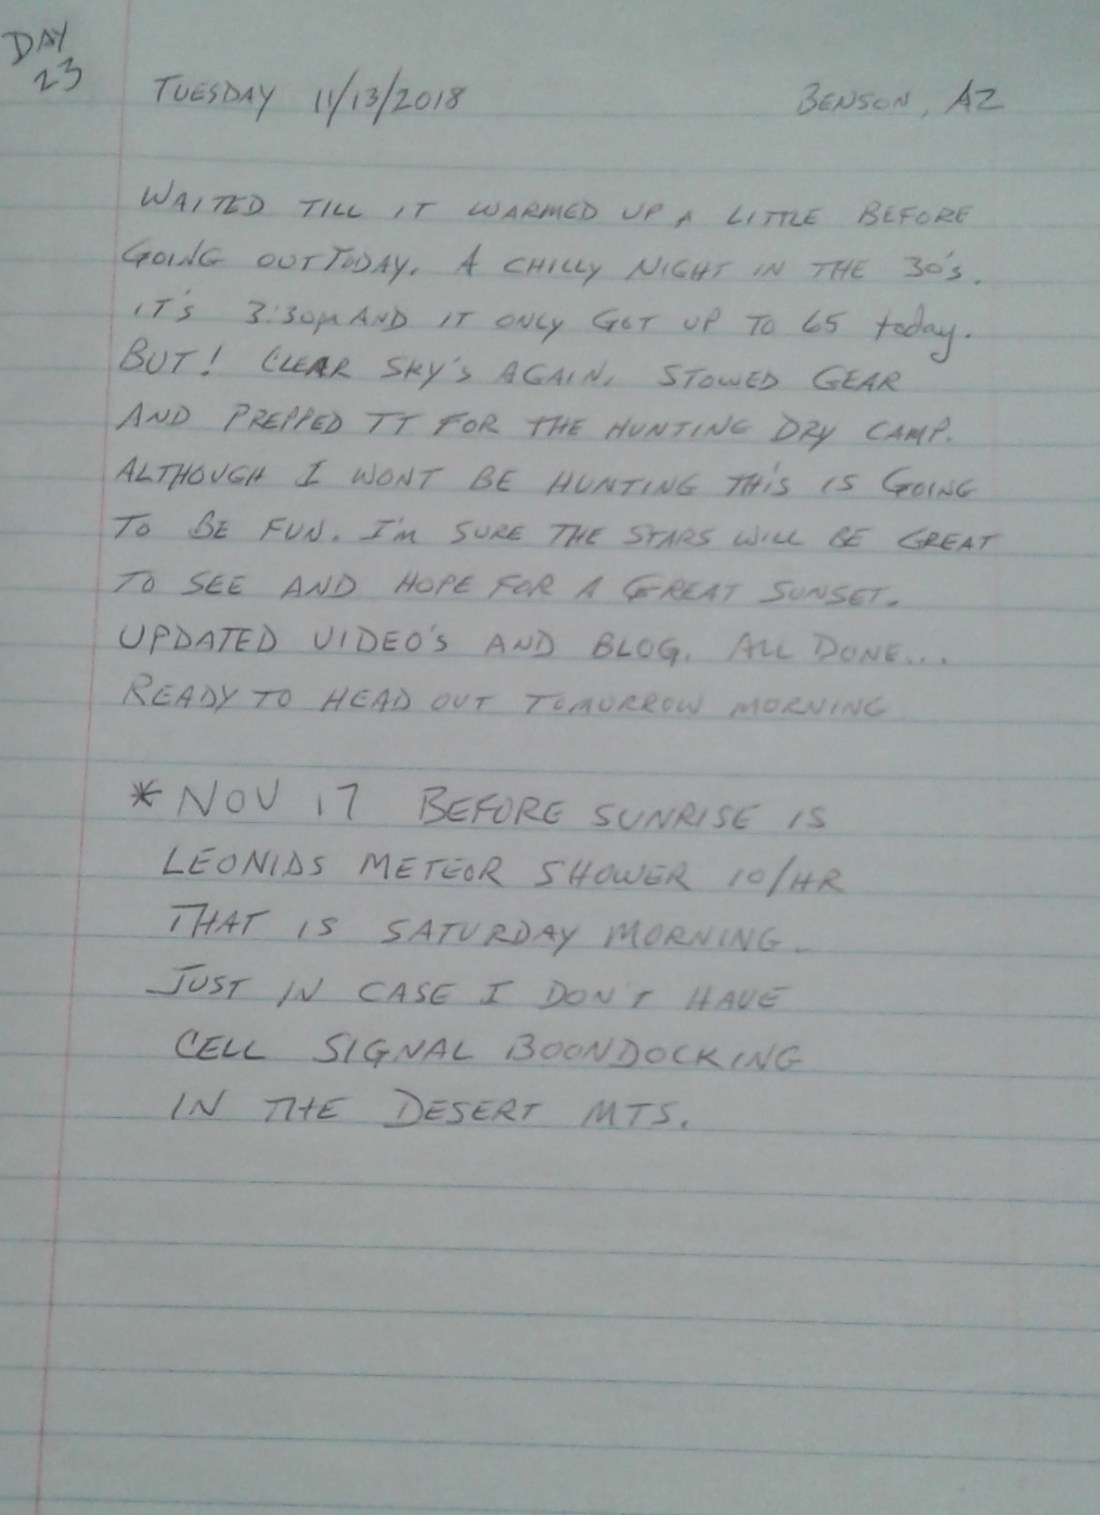 DAY
23
TUESDAY 11/13/2018 BENSON, AZ
WAITED TILL IT WARMED UP A LITTLE BEFORE
GOING OUT TODAY. A CHILLY NIGHT IN THE 30's.
IT'S 3:30pm AND IT ONLY GOT UP TO 65 today.
BUT! CLEAR SKY'S AGAIN. STOWED GEAR
AND PREPPED TT FOR THE HUNTING DRY CAMP.
ALTHOUGH I WONT BE HUNTING THIS IS GOING
TO BE FUN. I'm SURE THE STARS WILL BE GREAT
TO SEE AND HOPE FOR A GREAT SUNSET.
UPDATED VIDEO'S AND BLOG. ALL DONE...
READY TO HEAD OUT TOMURROW MORNING
* NOV 17 BEFORE SUNRISE IS
LEONIDS METEOR SHOWER 10/HR
THAT IS SATURDAY MORNING.
JUST IN CASE I DON'T HAVE
CELL SIGNAL BOONDOCKING
IN THE DESERT MTS.